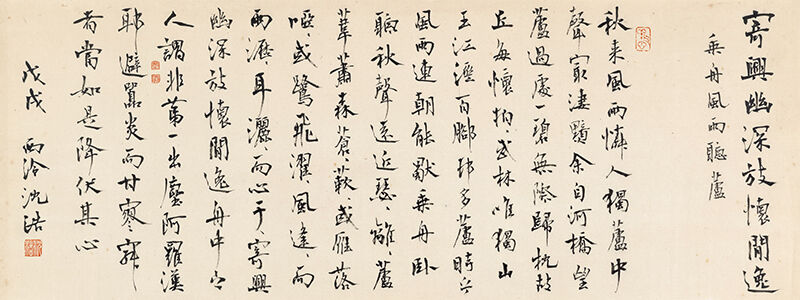 寄興幽深放懷閒逸
乘舟風雨聽蘆
秋來風雨憐人獨蘆中
聲冣淒黯余自河橋望
蘆過處一碧無際歸枕故
丘每懷拍、武林唯獨山
王江涇百腳邨多蘆時乎
風雨連朝能獨乘舟臥
聽秋聲遠近瑟、離、蘆
葦蕭森蒼、蔌、或雁落
啞、或鷺飛濯、風逢、而
雨瀝、耳灑、而心于、寄興
幽深放懷閒逸舟中之
人謂非第一出塵阿羅漢
耶避囂炎而甘寥寂
者當如是降伏其心
戊戌 西泠沈浩